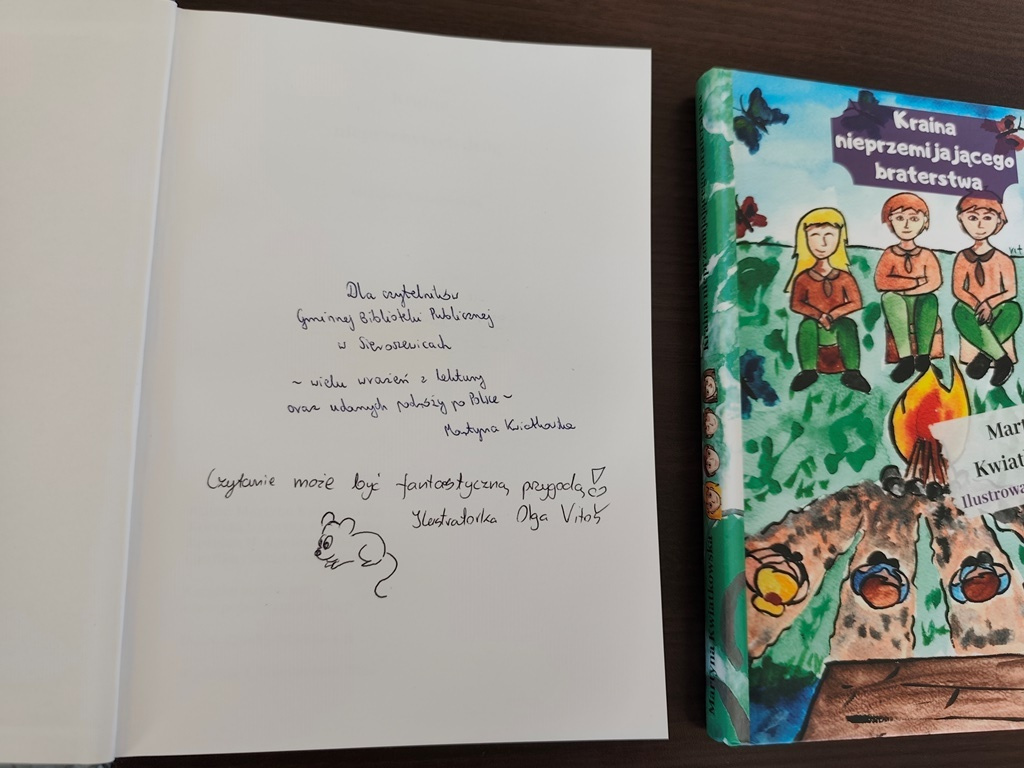 Dla czytelników
Gminnej Biblioteki Publicznej
w Sieroszewicach
~ wielu wrażeń z lektury
oraz udanych podróży po Polsce ~
Martyna Kwiatkowska
Czytanie może być fantastyczną przygodą!
Ilustratorka Olga Vitoš
Kraina
nieprzemijającego
braterstwa
Mart
Kwiat
Ilustrowa
Martyna Kwiatkowska